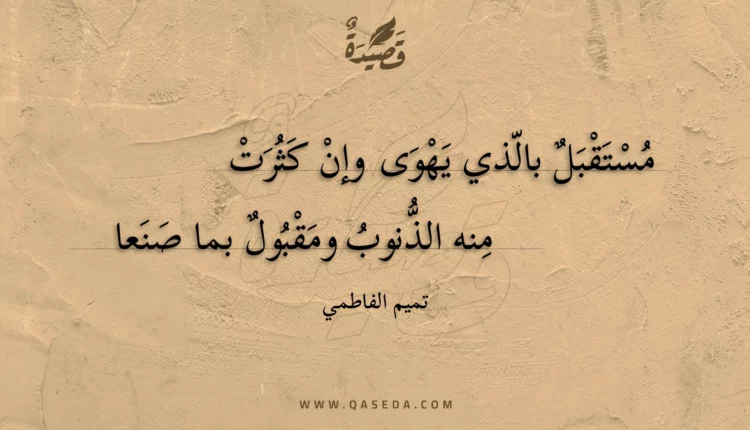 قَصِيْدَةٌ
مُسْتَقْبَلٌ بالّذي يَهْوَى وإنْ كَثُرَتْ
مِنه الذُّنوبُ ومَقْبُولٌ بما صَنَعا
تميم الفاطمي
WWW.QASEDA.COM